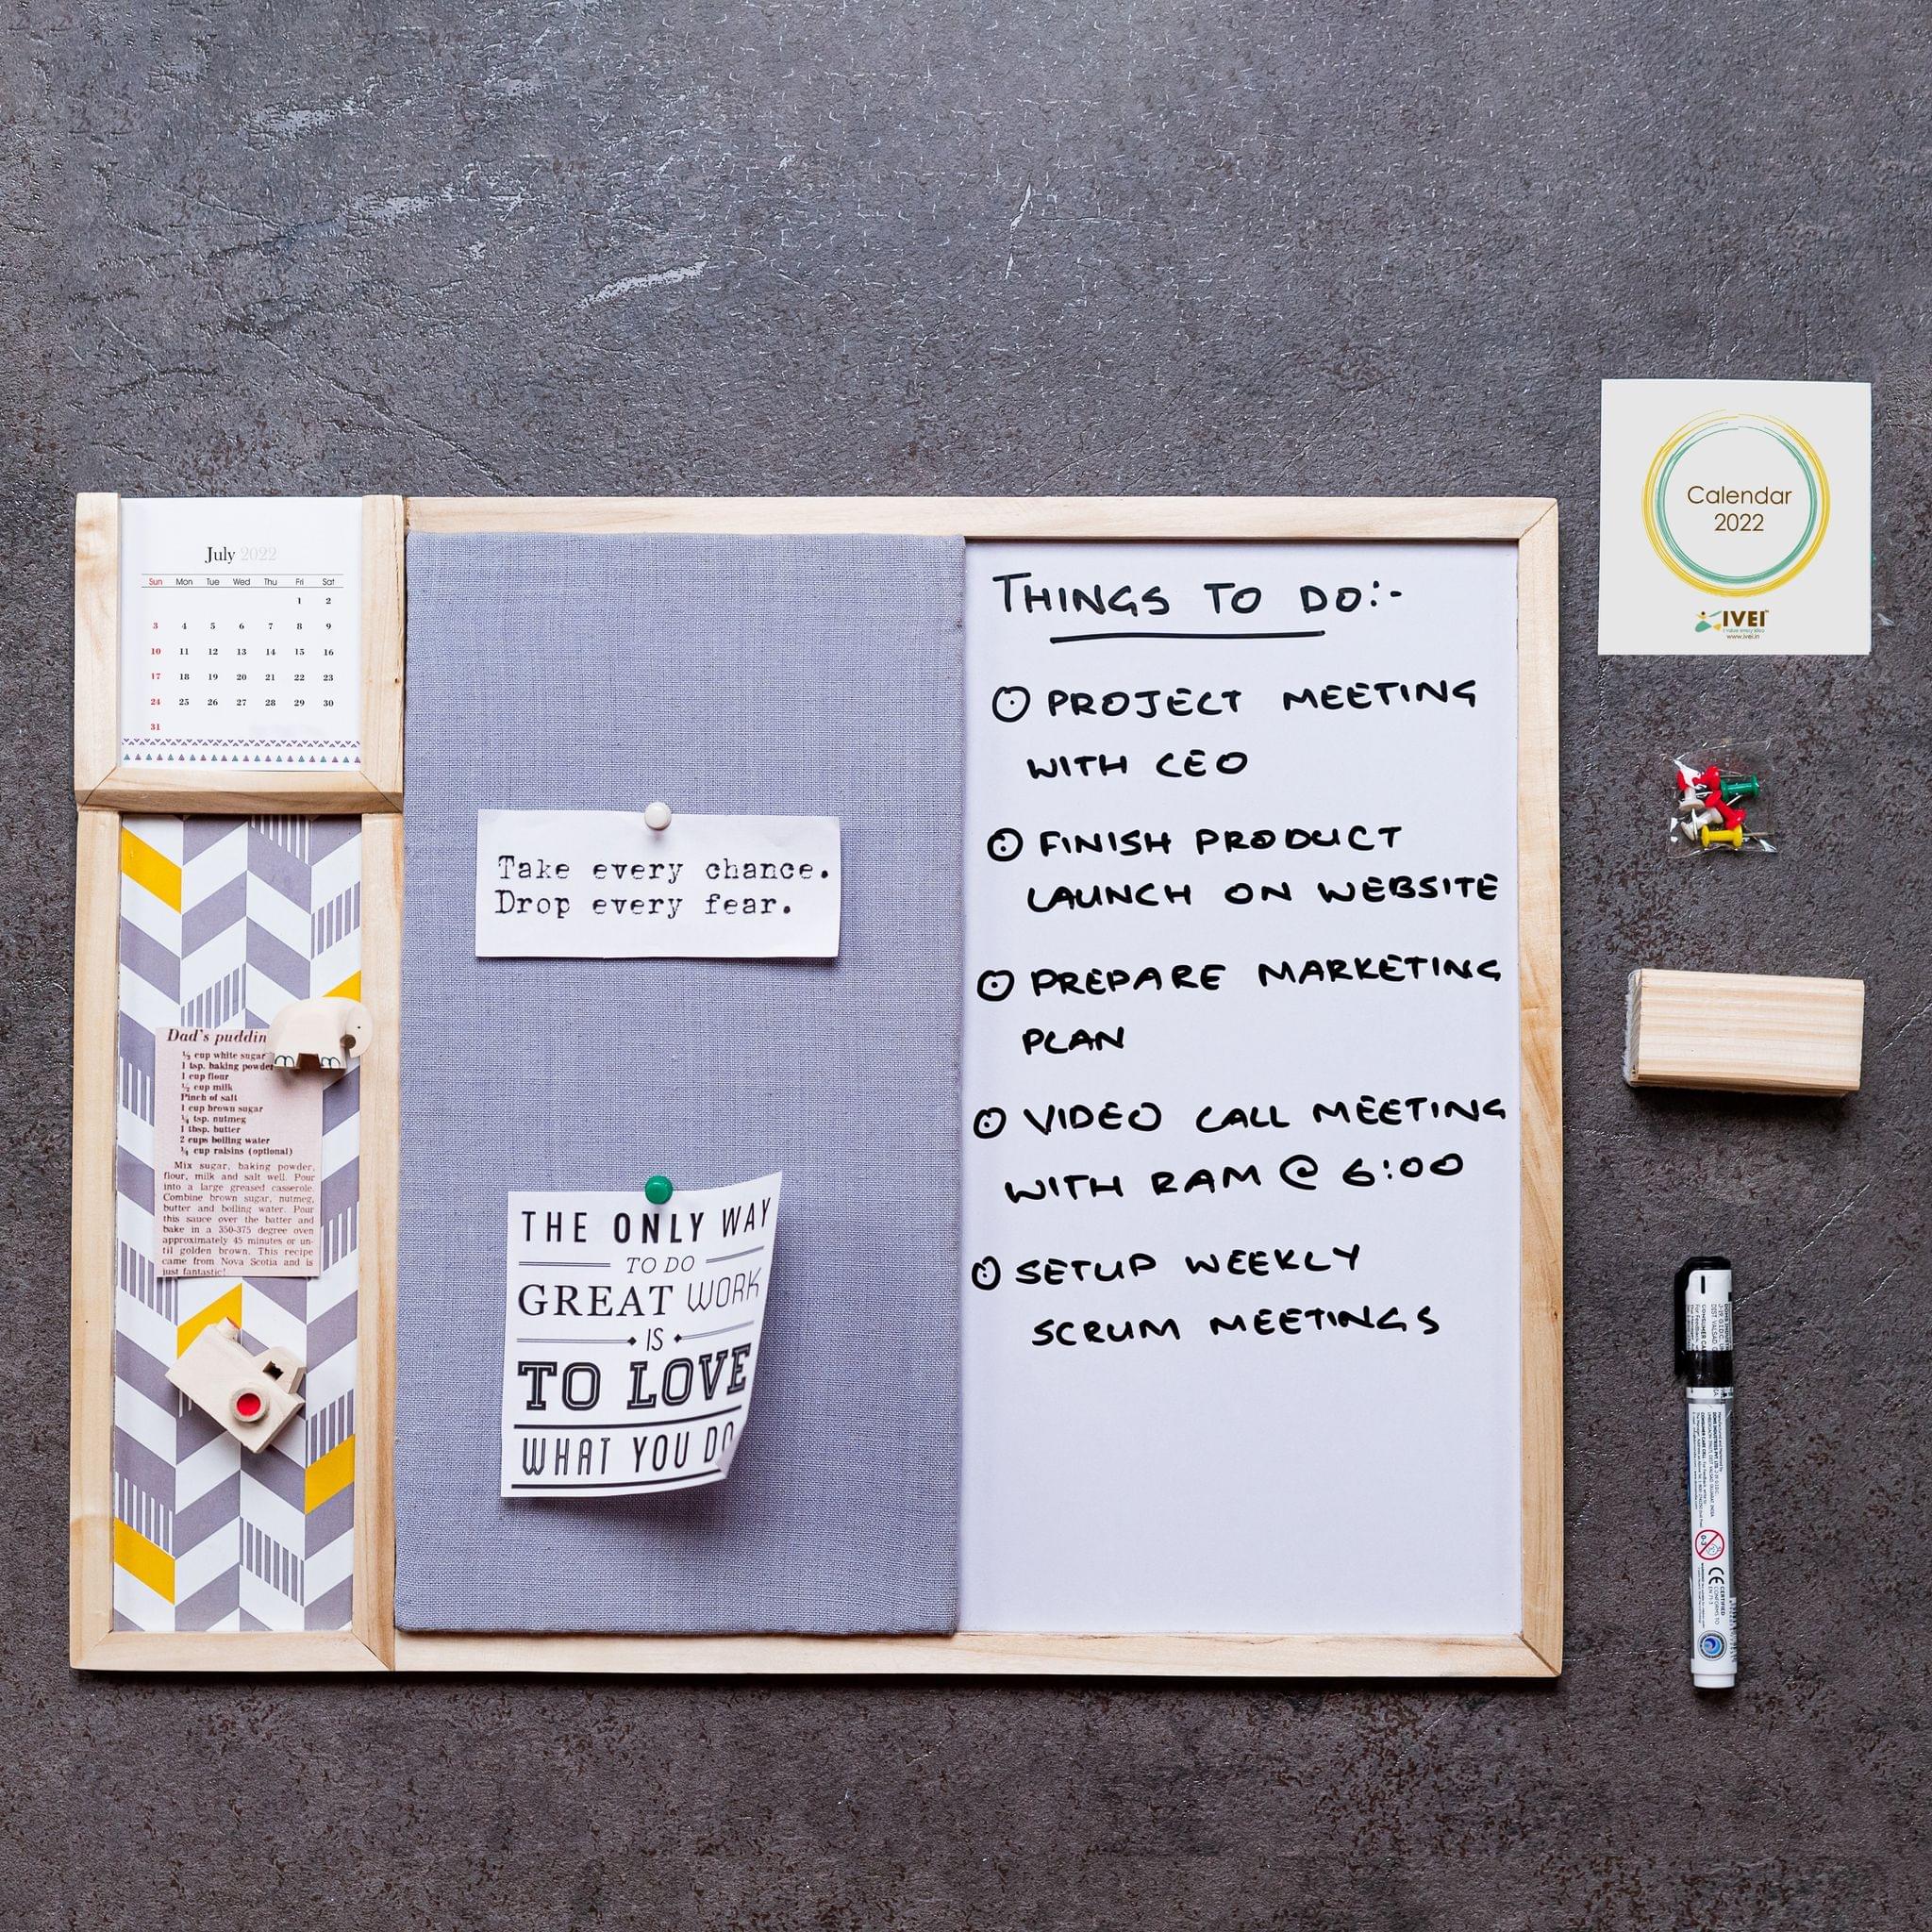 July 2022
Sun Mon Tue Wed Thu Fri Sat
1 2
3 4 5 6 7 8 9
10 11 12 13 14 15 16
17 18 19 20 21 22 23
24 25 26 27 28 29 30
31
Dad's puddin
⅓ cup white sugar
1 tsp. baking powde
1 cup flour
½ cup milk
Pinch of salt
1 cup brown sugar
¼ tsp. nutmeg
1 tbsp. butter
2 cups boiling water
¾ cup raisins (optional)
Mix sugar, baking powder,
flour, milk and salt well. Pour
into a large greased casserole.
Combine brown sugar, nutmeg,
butter and boiling water. Pour
this sauce over the batter and
bake in a 350-375 degree oven
approximately 45 minutes or un-
til golden brown. This recipe
came from Nova Scotia and is
just fantastic!
Take every chance.
Drop every fear.
THE ONLY WAY
TO DO
GREAT WORK
IS
TO LOVE
WHAT YOU DO
THINGS TO DO:-
PROJECT MEETING
WITH CEO
FINISH PRODUCT
LAUNCH ON WEBSITE
PREPARE MARKETING
PLAN
VIDEO CALL MEETING
WITH RAM @ 6:00
SETUP WEEKLY
SCRUM MEETINGS
Calendar
2022
IVEI
www.ivei.in
CE